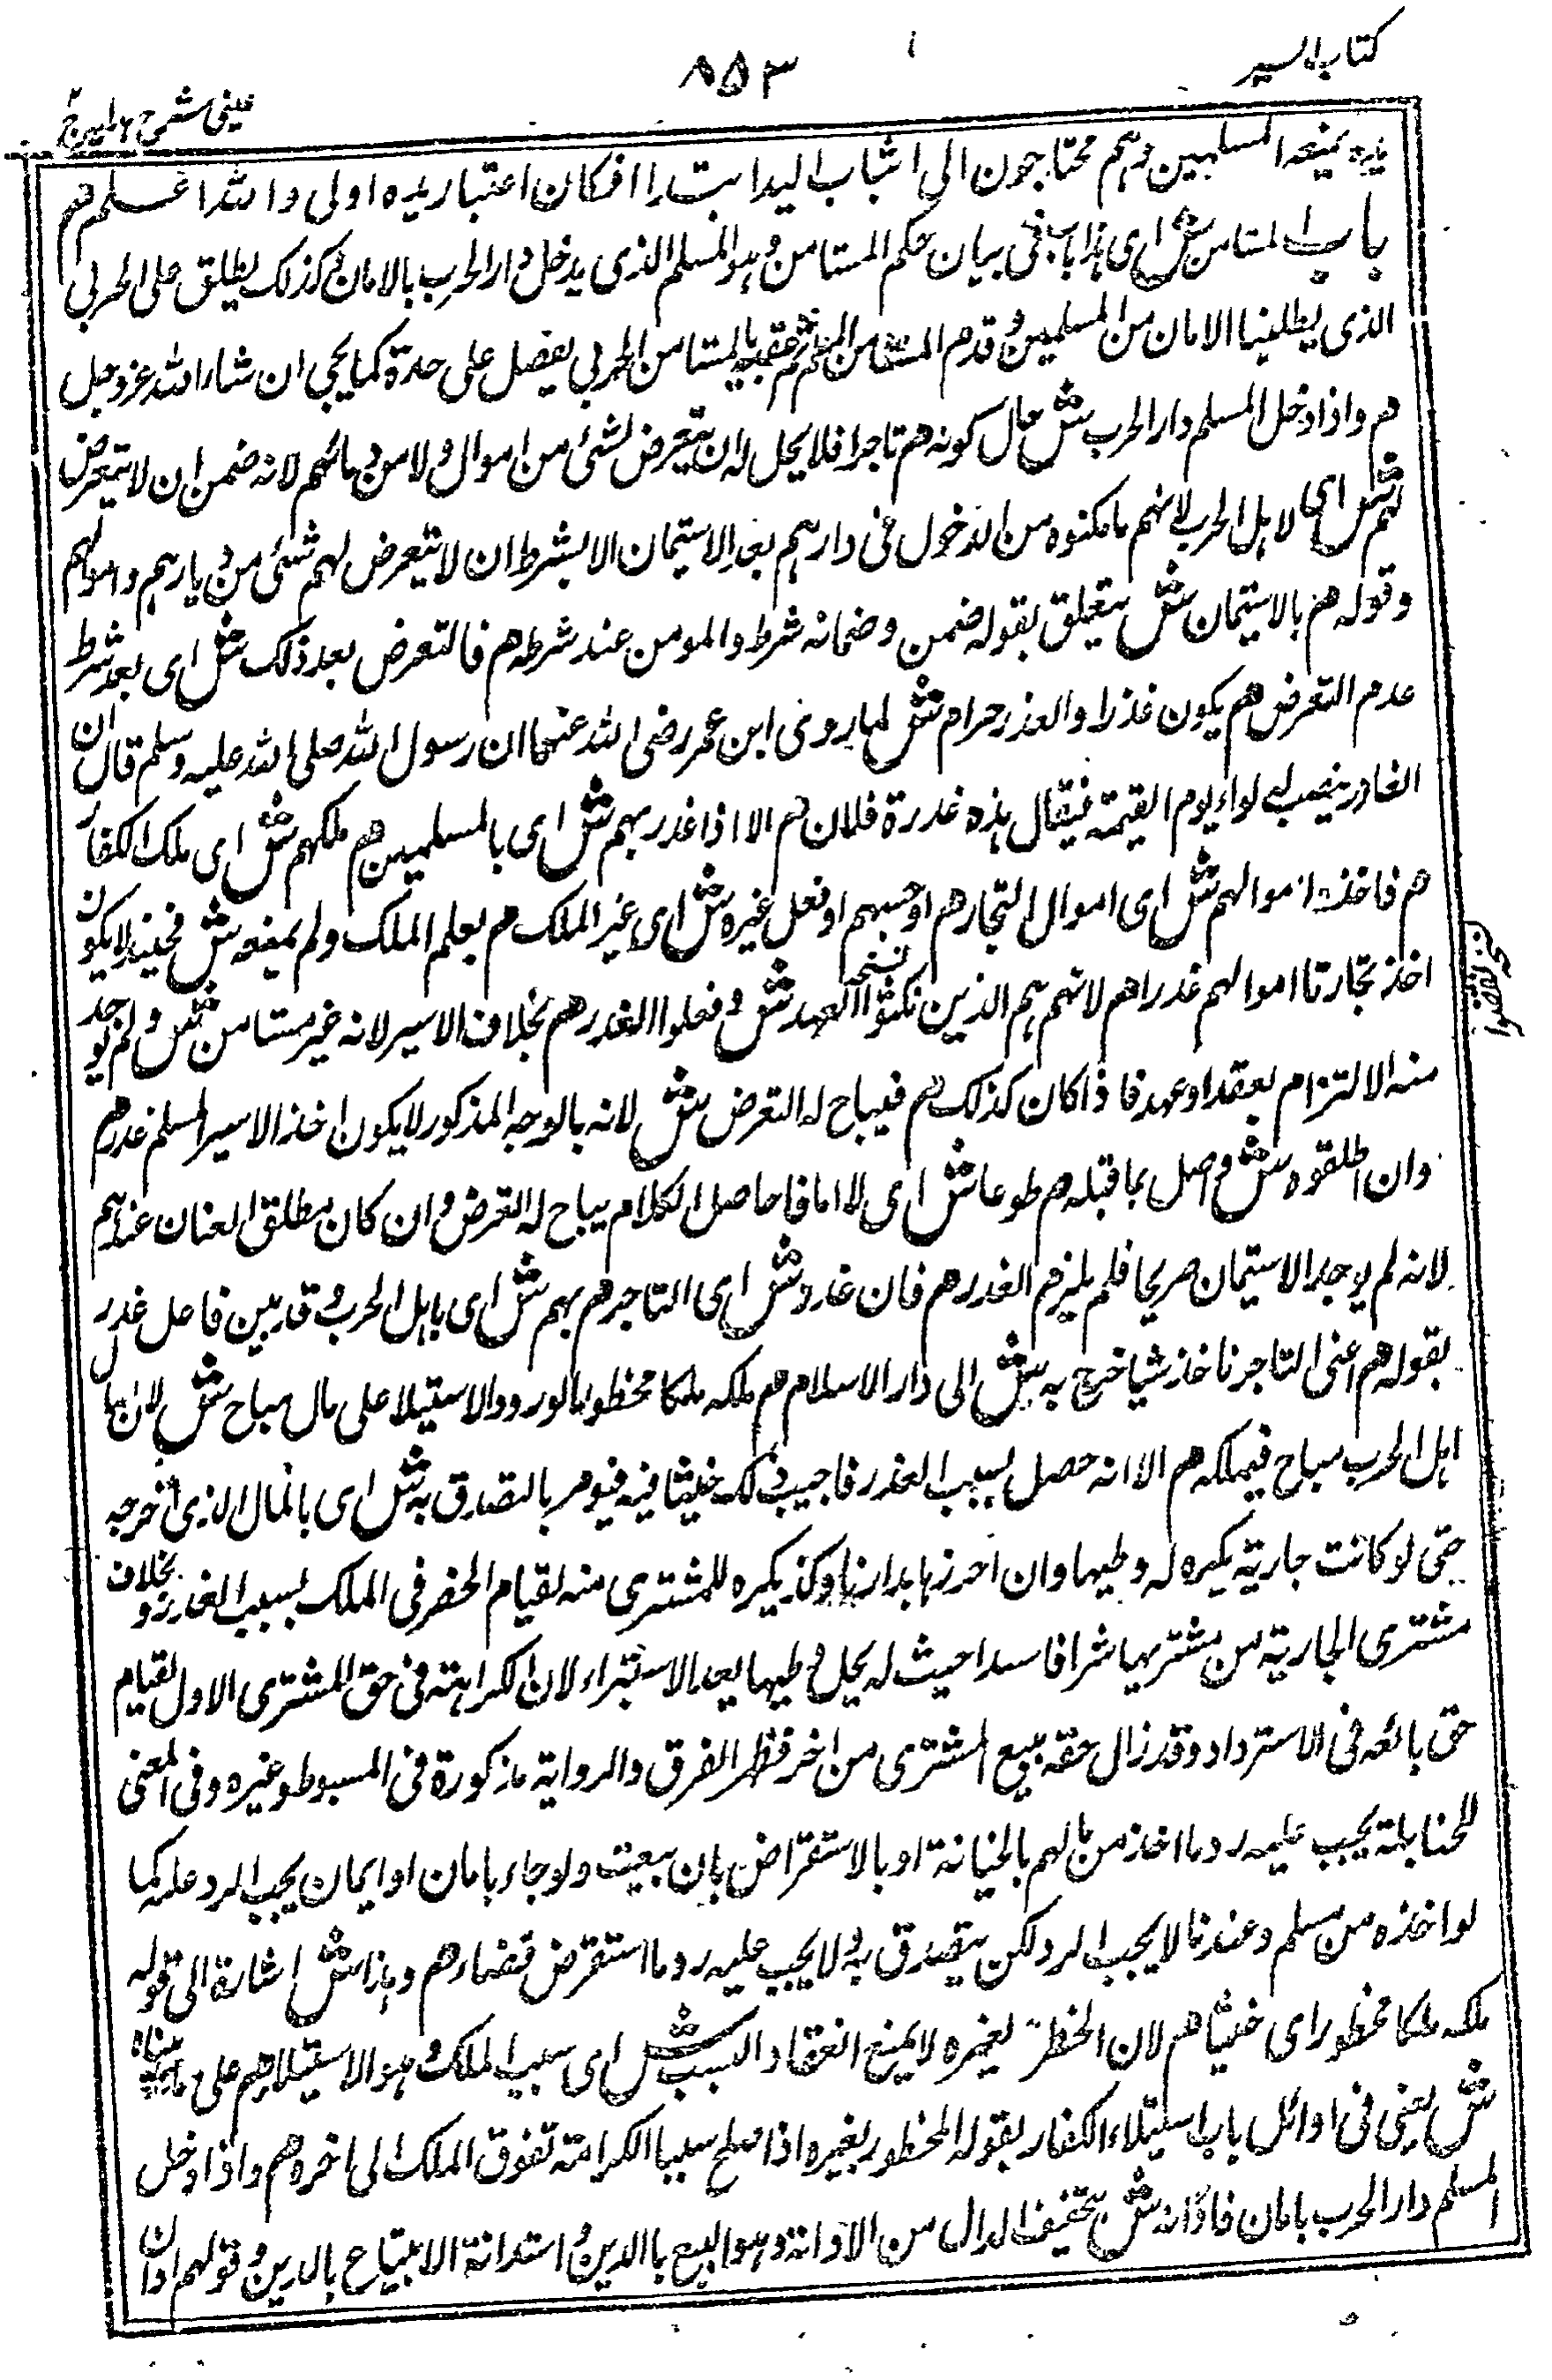 كتاب السير
٨٥٣
عينى شرح هدايه ج ٢
يده بمنعه المسلمين وهم محتاجون الى اثبات اليد ابتداء فكان اعتبار يده اولى والله اعلم هم
باب المستامن ش اى هذا باب فى بيان حكم المستامن وهو المسلم الذى يدخل دار الحرب بالامان وكذلك يطلق على الحربى
الذى يطلب الامان من المسلمين وقدم المستامن المسلم ثم عقبه بالمستامن الحربى بفصل على حدة كما يجى ان شاء الله عزوجل
هم واذا دخل المسلم دار الحرب ش حال كونه هم تاجرا فلا يحل له ان يتعرض لشئ من اموالهم ولا من دمائهم لانه ضمن ان لا يتعرض
لهم ش اى لاهل الحرب لانهم ما مكنوه من الدخول فى دارهم بعد الاستيمان الا بشرط ان لا يتعرض لهم شئ من ديارهم واموالهم
وقوله هم بالاستيمان ش يتعلق بقوله ضمن وضمانه شرط والمومن عند شرطه هم فالتعرض بعد ذلك ش اى بعد شرط
عدم التعرض هم يكون غدرا والغدر حرام ش لما روى ابن عمر رضى الله عنهما ان رسول الله صلى الله عليه وسلم قال ان
الغادر ينصب له لواء يوم القيمة فيقال هذه غدرة فلان هم الا اذا غدر بهم ش اى بالمسلمين هم ملكهم ش اى ملك الكفار
هم فاخذ اموالهم ش اى اموال التجار هم او حبسهم او فعل غيره ش اى غير الملك هم بعلم الملك ولم يمنعه ش فحينئذ لا يكون
اخذ تجارنا اموالهم غدرا هم لانهم هم الذين نكثوا العهد ش وفعلوا الغدر هم بخلاف الاسير لانه غير مستامن ش ولم يوجد
منه الالتزام بعقد او عهد فاذا كان كذلك هم فيباح له التعرض ش لانه بالوجه المذكور لا يكون اخذ الاسير المسلم غدرا هم
وان اطلقوه ش واصل بما قبله هم طوعا ش اى لا امانا حاصل الكلام يباح له التعرض وان كان مطلق العنان عندهم
لانه لم يوجد الاستيمان صريحا فلم يلزم الغدر هم فان غدر ش اى التاجر هم بهم ش اى باهل الحرب وقد بين فاعل غدر
بقوله هم اعنى التاجر فاخذ شيا خرج به ش الى دار الاسلام هم ملكه ملكا محظورا لورود الاستيلا على مال مباح ش لان مال
اهل الحرب مباح فيملكه هم الا انه حصل بسبب الغدر فاجيب ذلك خبثا فيه فيومر بالتصدق به ش اى بالمال الذى اخرجه
حتى لو كانت جارية يكره له وطيها وان احرزها بدارنا وكذا يكره للمشترى منه لقيام الحضر فى الملك بسبب الغدر وبخلاف
مشترى الجارية من مشتريها شرا فاسدا حيث له يحل وطيها بعد الاستبراء لان الكراهة فى حق المشترى الاول لقيام
حق بائعه فى الاسترداد وقد زال حقه ببيع المشترى من اخر فظهر الفرق والرواية مذكورة فى المبسوط وغيره وفى المغنى
للحنابلة يجب عليه رد ما اخذ من مالهم بالخيانة او بالاستقراض بان بيعت ولو جاء بامان او ايمان يجب الرد عليه كما
لو اخذه من مسلم وعندنا لا يجب الرد لكن يتصدق به ولا يجب عليه رد ما استقرض قضاء هم وهذا ش اشارة الى قوله
ملكه ملكا محظورا اى خبيثا هم لان الحظر لغيره لا يمنع انعقاد السبب ش اى سبب الملك وهو الاستيلا هم على ما بيناه
ش يعنى فى اوائل باب استيلاء الكفار بقوله المحظور بغيره اذا صلح سببا الكرامة تفوق الملك الى اخره هم واذا دخل
المسلم دار الحرب بامان فادانه ش بتخفيف الدال من الادانة وهو البيع بالدين واستدانة الابتياع بالدين وقولهم ادان